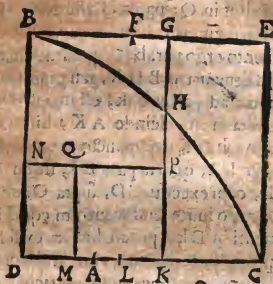 B F G E
H
N Q P
D M A L K C